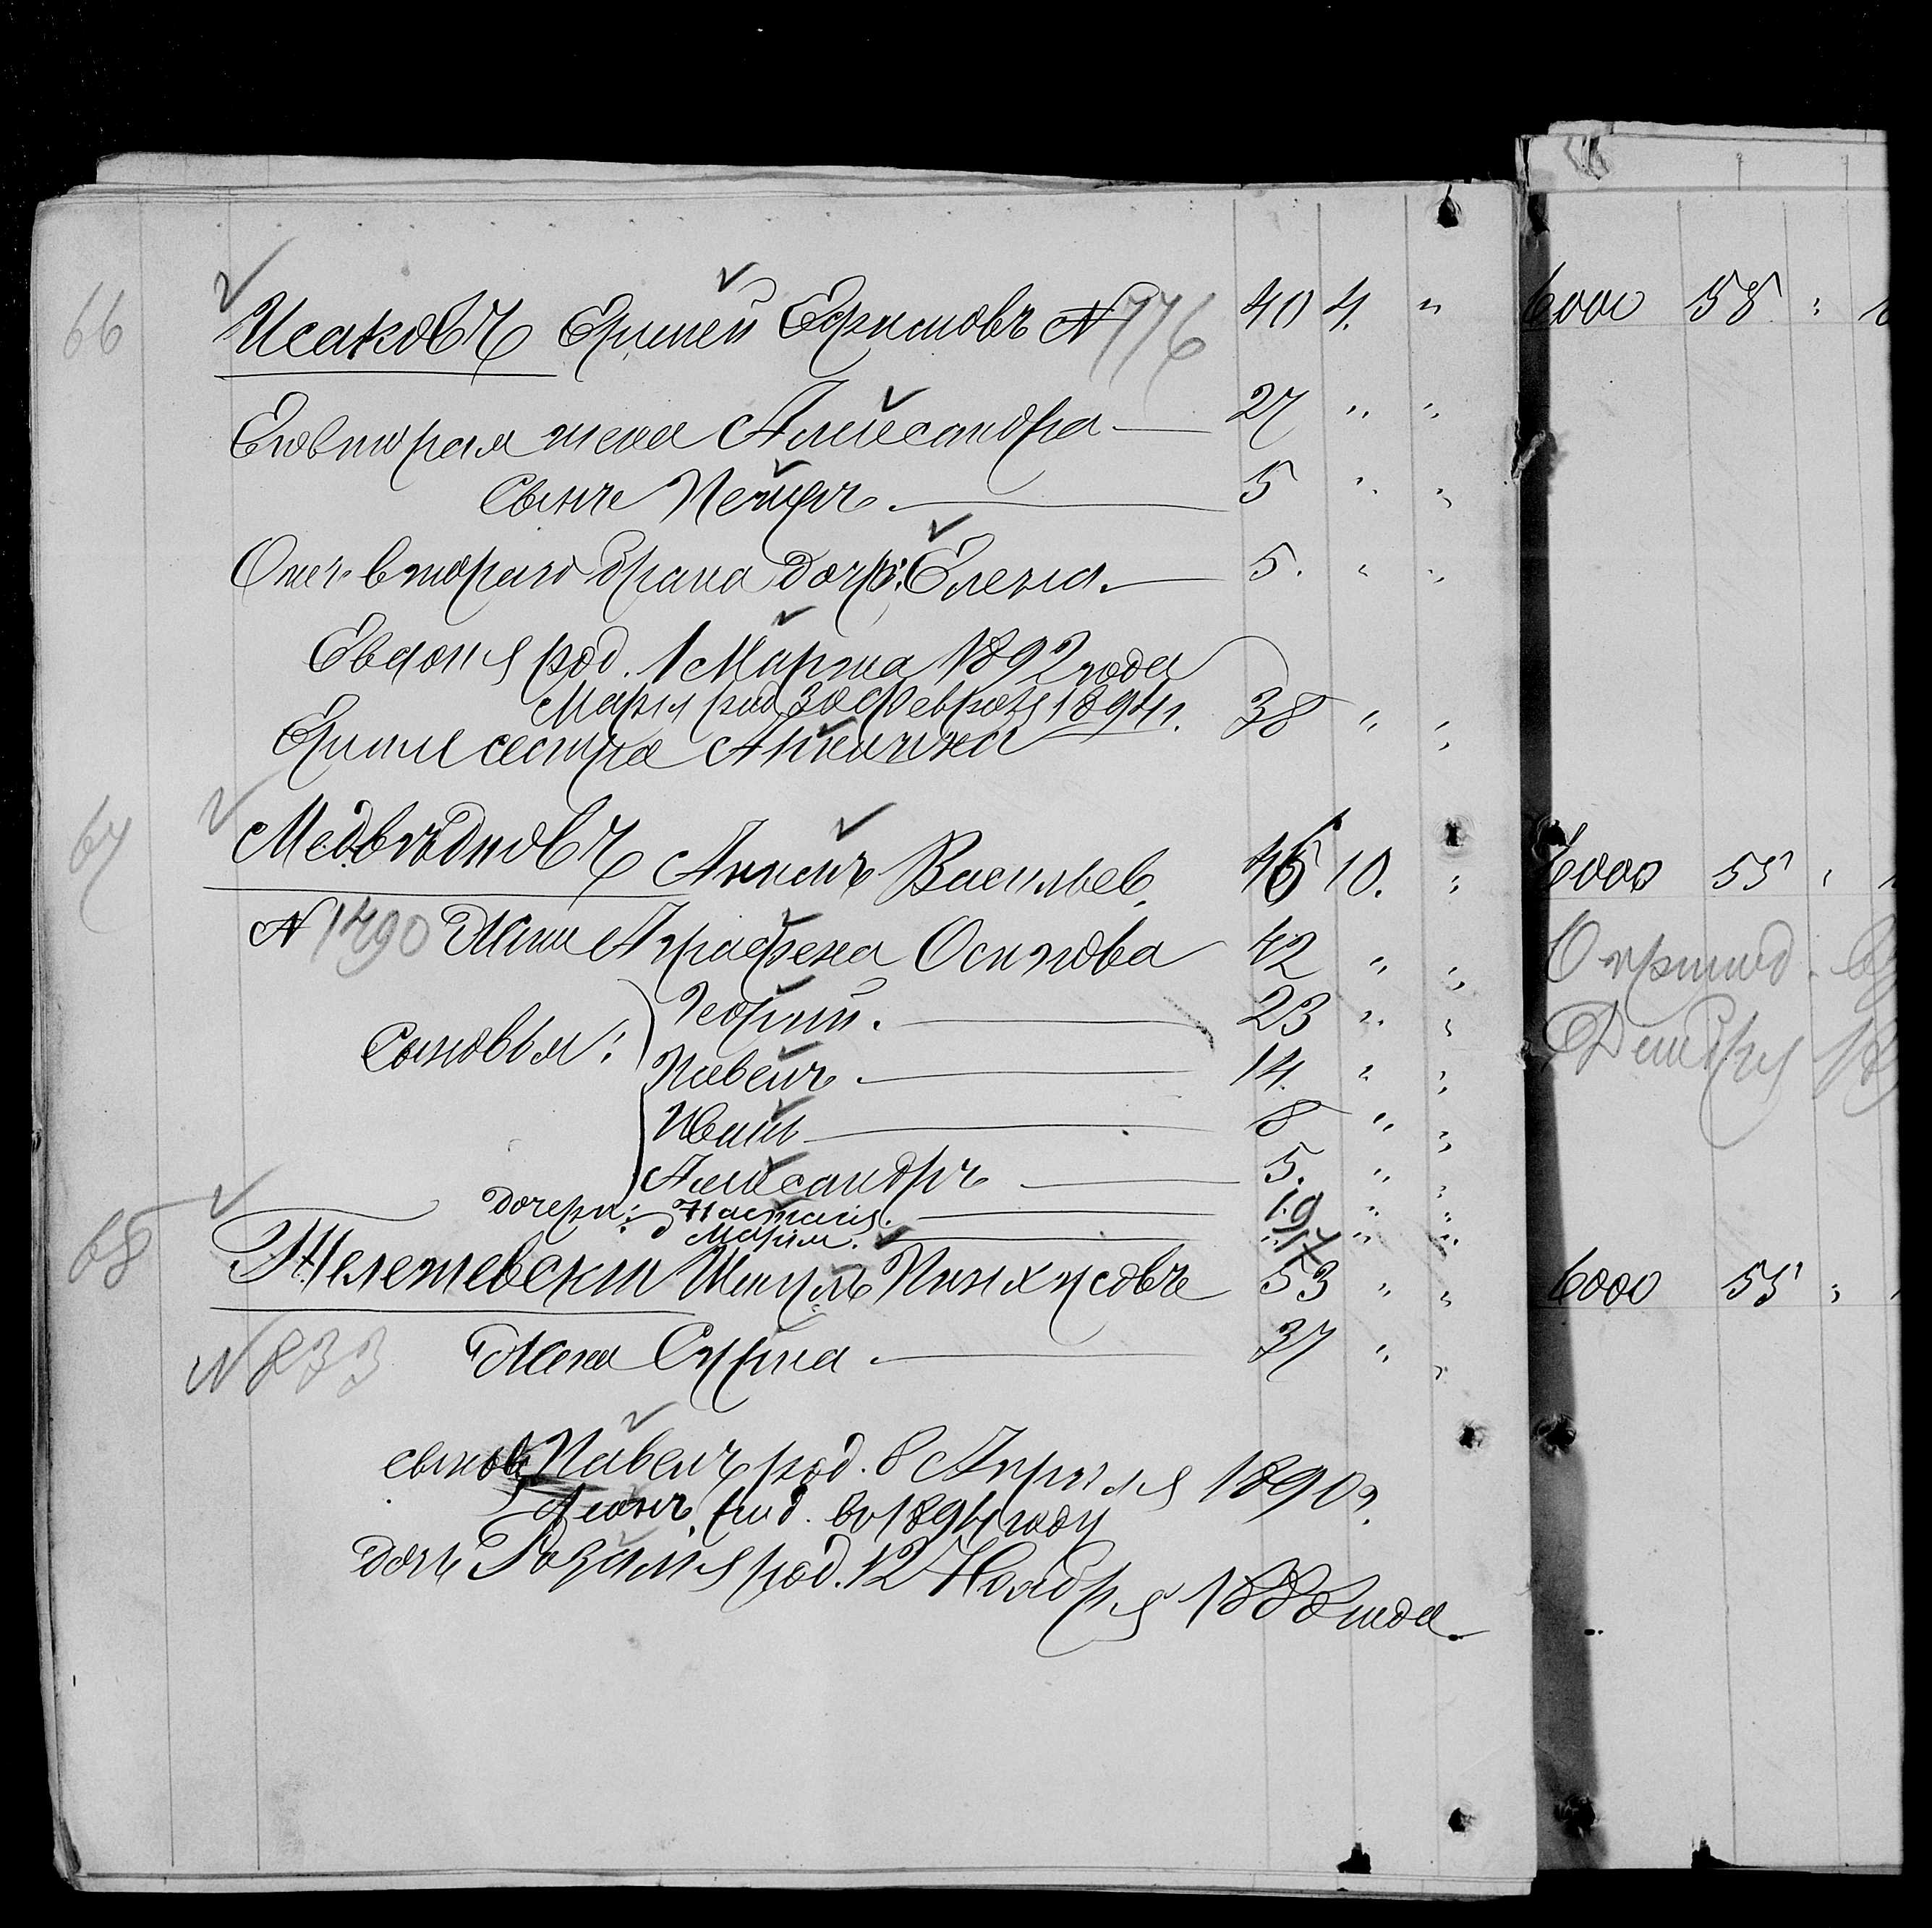 66 Исаковъ Еремей Ефимовъ № 776 40 4. " 6000 55 "
Его вторая жена Александра — 27 " "
Сынъ Петръ. — 5 " "
Отъ втораго брака дочь: Елена. — 5. " "
Евдокия род. 1 Марта 1892 года
Мария род. Февраля 1894 г.
сестра 38 " "
67 Медведковъ Васильев. 45 10. " 6000 55 "
№ 1490 Жена Аграфена Осипова 42 " "
Сыновья: Георгий. — 23 " "
Павелъ. — 14. " "
Иванъ — 8 " "
Александръ — 5. " "
Дочери: Настасия. — 19 " "
Мария. — 17 " "
68 Телешевский Пинхусовъ 53 " " 6000 55 "
№ 833 Жена — 37 " "
сынов Павелъ род. 8 Апреля 1890 г.
Леонъ род. в 1894 году
дочь Розалия род. 12 Ноября 1888 года.